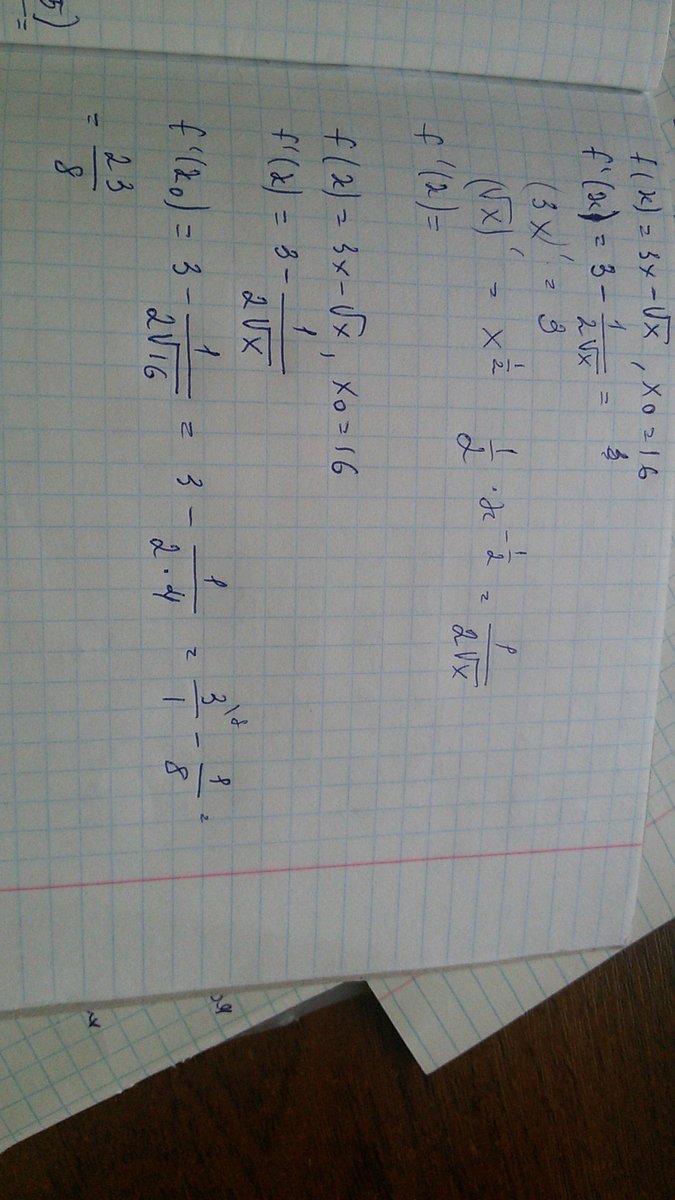 f(x) = 3x - √x, x₀ = 16
f'(x) = 3 - 1/(2√x) = 3
(3x)' = 3
(√x)' = x^(1/2) 1/2 · x^(-1/2) = 1/(2√x)
f'(x) =
f(x) = 3x - √x, x₀ = 16
f'(x) = 3 - 1/(2√x)
f'(x₀) = 3 - 1/(2√16) = 3 - 1/(2·4) = 3\8/1 - 1/8 =
= 23/8